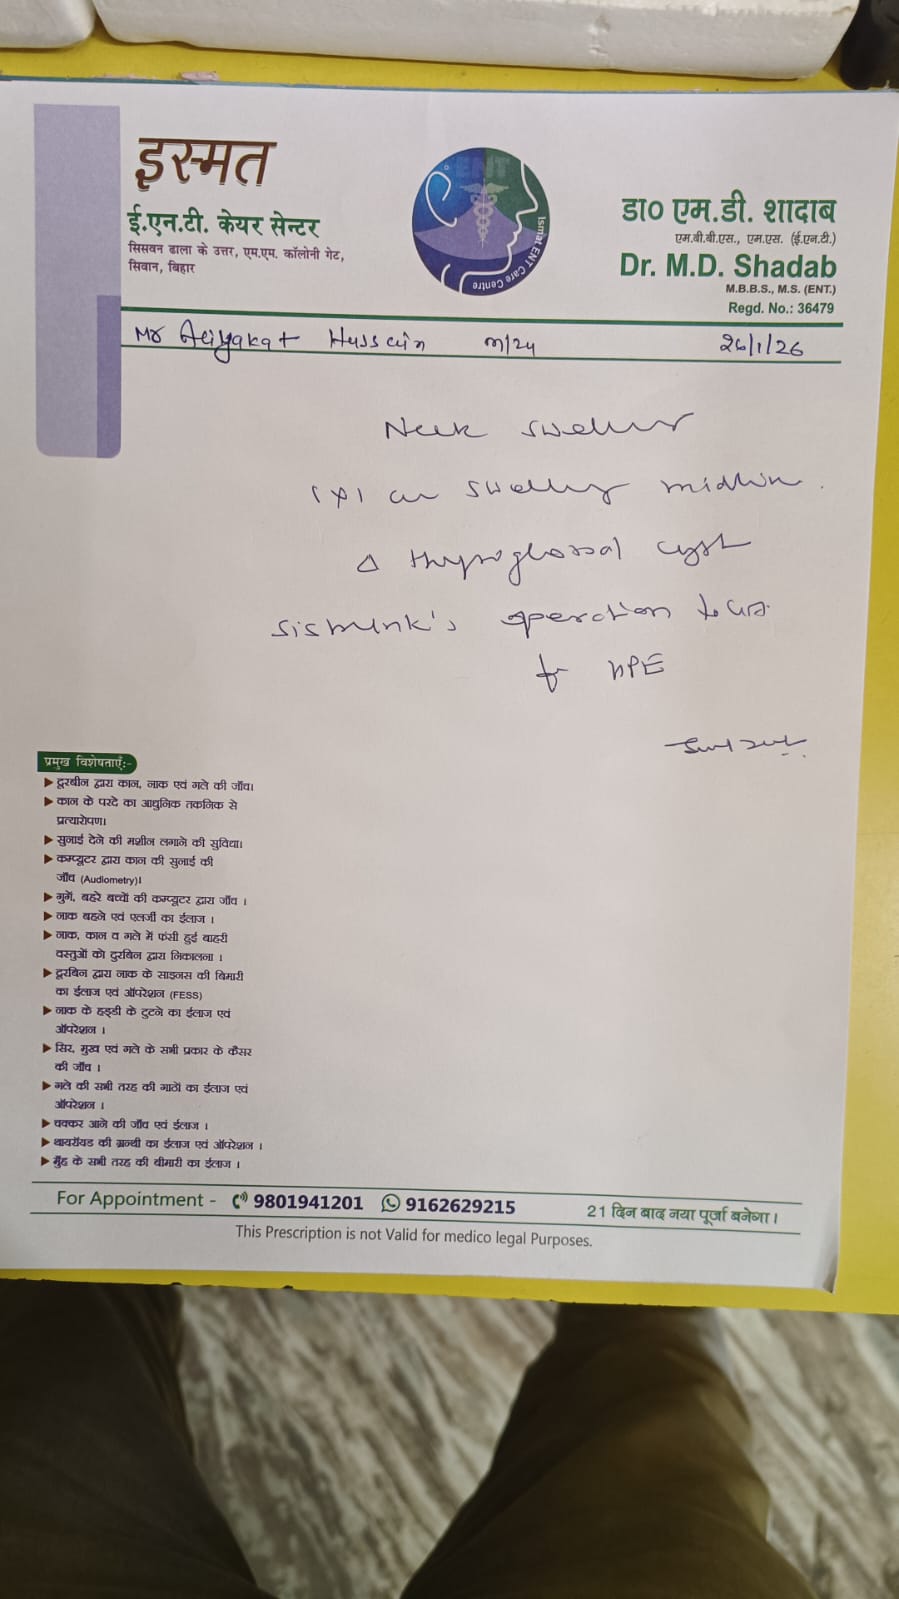 इस्मत
ई.एन.टी. केयर सेन्टर
सिसवन ढाला के उत्तर, एम.एम. कॉलोनी गेट,
सिवान, बिहार
ENT
Ismat ENT Care Centre
डा० एम.डी. शादाब
एम.बी.बी.एस., एम.एस. (ई.एन.टी.)
Dr. M.D. Shadab
M.B.B.S., M.S. (ENT.)
Regd. No.: 36479
Mr Hussain m/24 26/1/26
Neck swelling
swelling midline
Δ thyroglossal cyst
operation
HPE
प्रमुख विशेषताएँ:-
दूरबीन द्वारा कान, नाक एवं गले की जाँच।
कान के परदे का आधुनिक तकनिक से
प्रत्यारोपण।
सुनाई देने की मशीन लगाने की सुविधा।
कम्प्यूटर द्वारा कान की सुनाई की
जाँच (Audiometry)।
गुगें, बहरे बच्चों की कम्प्यूटर द्वारा जाँच ।
नाक बहने एवं एलर्जी का ईलाज ।
नाक, कान व गले में फंसी हुई बाहरी
वस्तुओं को दुरबिन द्वारा निकालना ।
दूरबिन द्वारा नाक के साइनस की बिमारी
का ईलाज एवं ऑपरेशन (FESS)
नाक के हड्डी के टुटने का ईलाज एवं
ऑपरेशन ।
सिर, मुख एवं गले के सभी प्रकार के कैंसर
की जाँच ।
गले की सभी तरह की गाठों का ईलाज एवं
ऑपरेशन ।
चक्कर आने की जाँच एवं ईलाज ।
थायरॉयड की ग्रन्थी का ईलाज एवं ऑपरेशन ।
मुँह के सभी तरह की बीमारी का ईलाज ।
For Appointment - 9801941201 9162629215
21 दिन बाद नया पूर्जा बनेगा।
This Prescription is not Valid for medico legal Purposes.